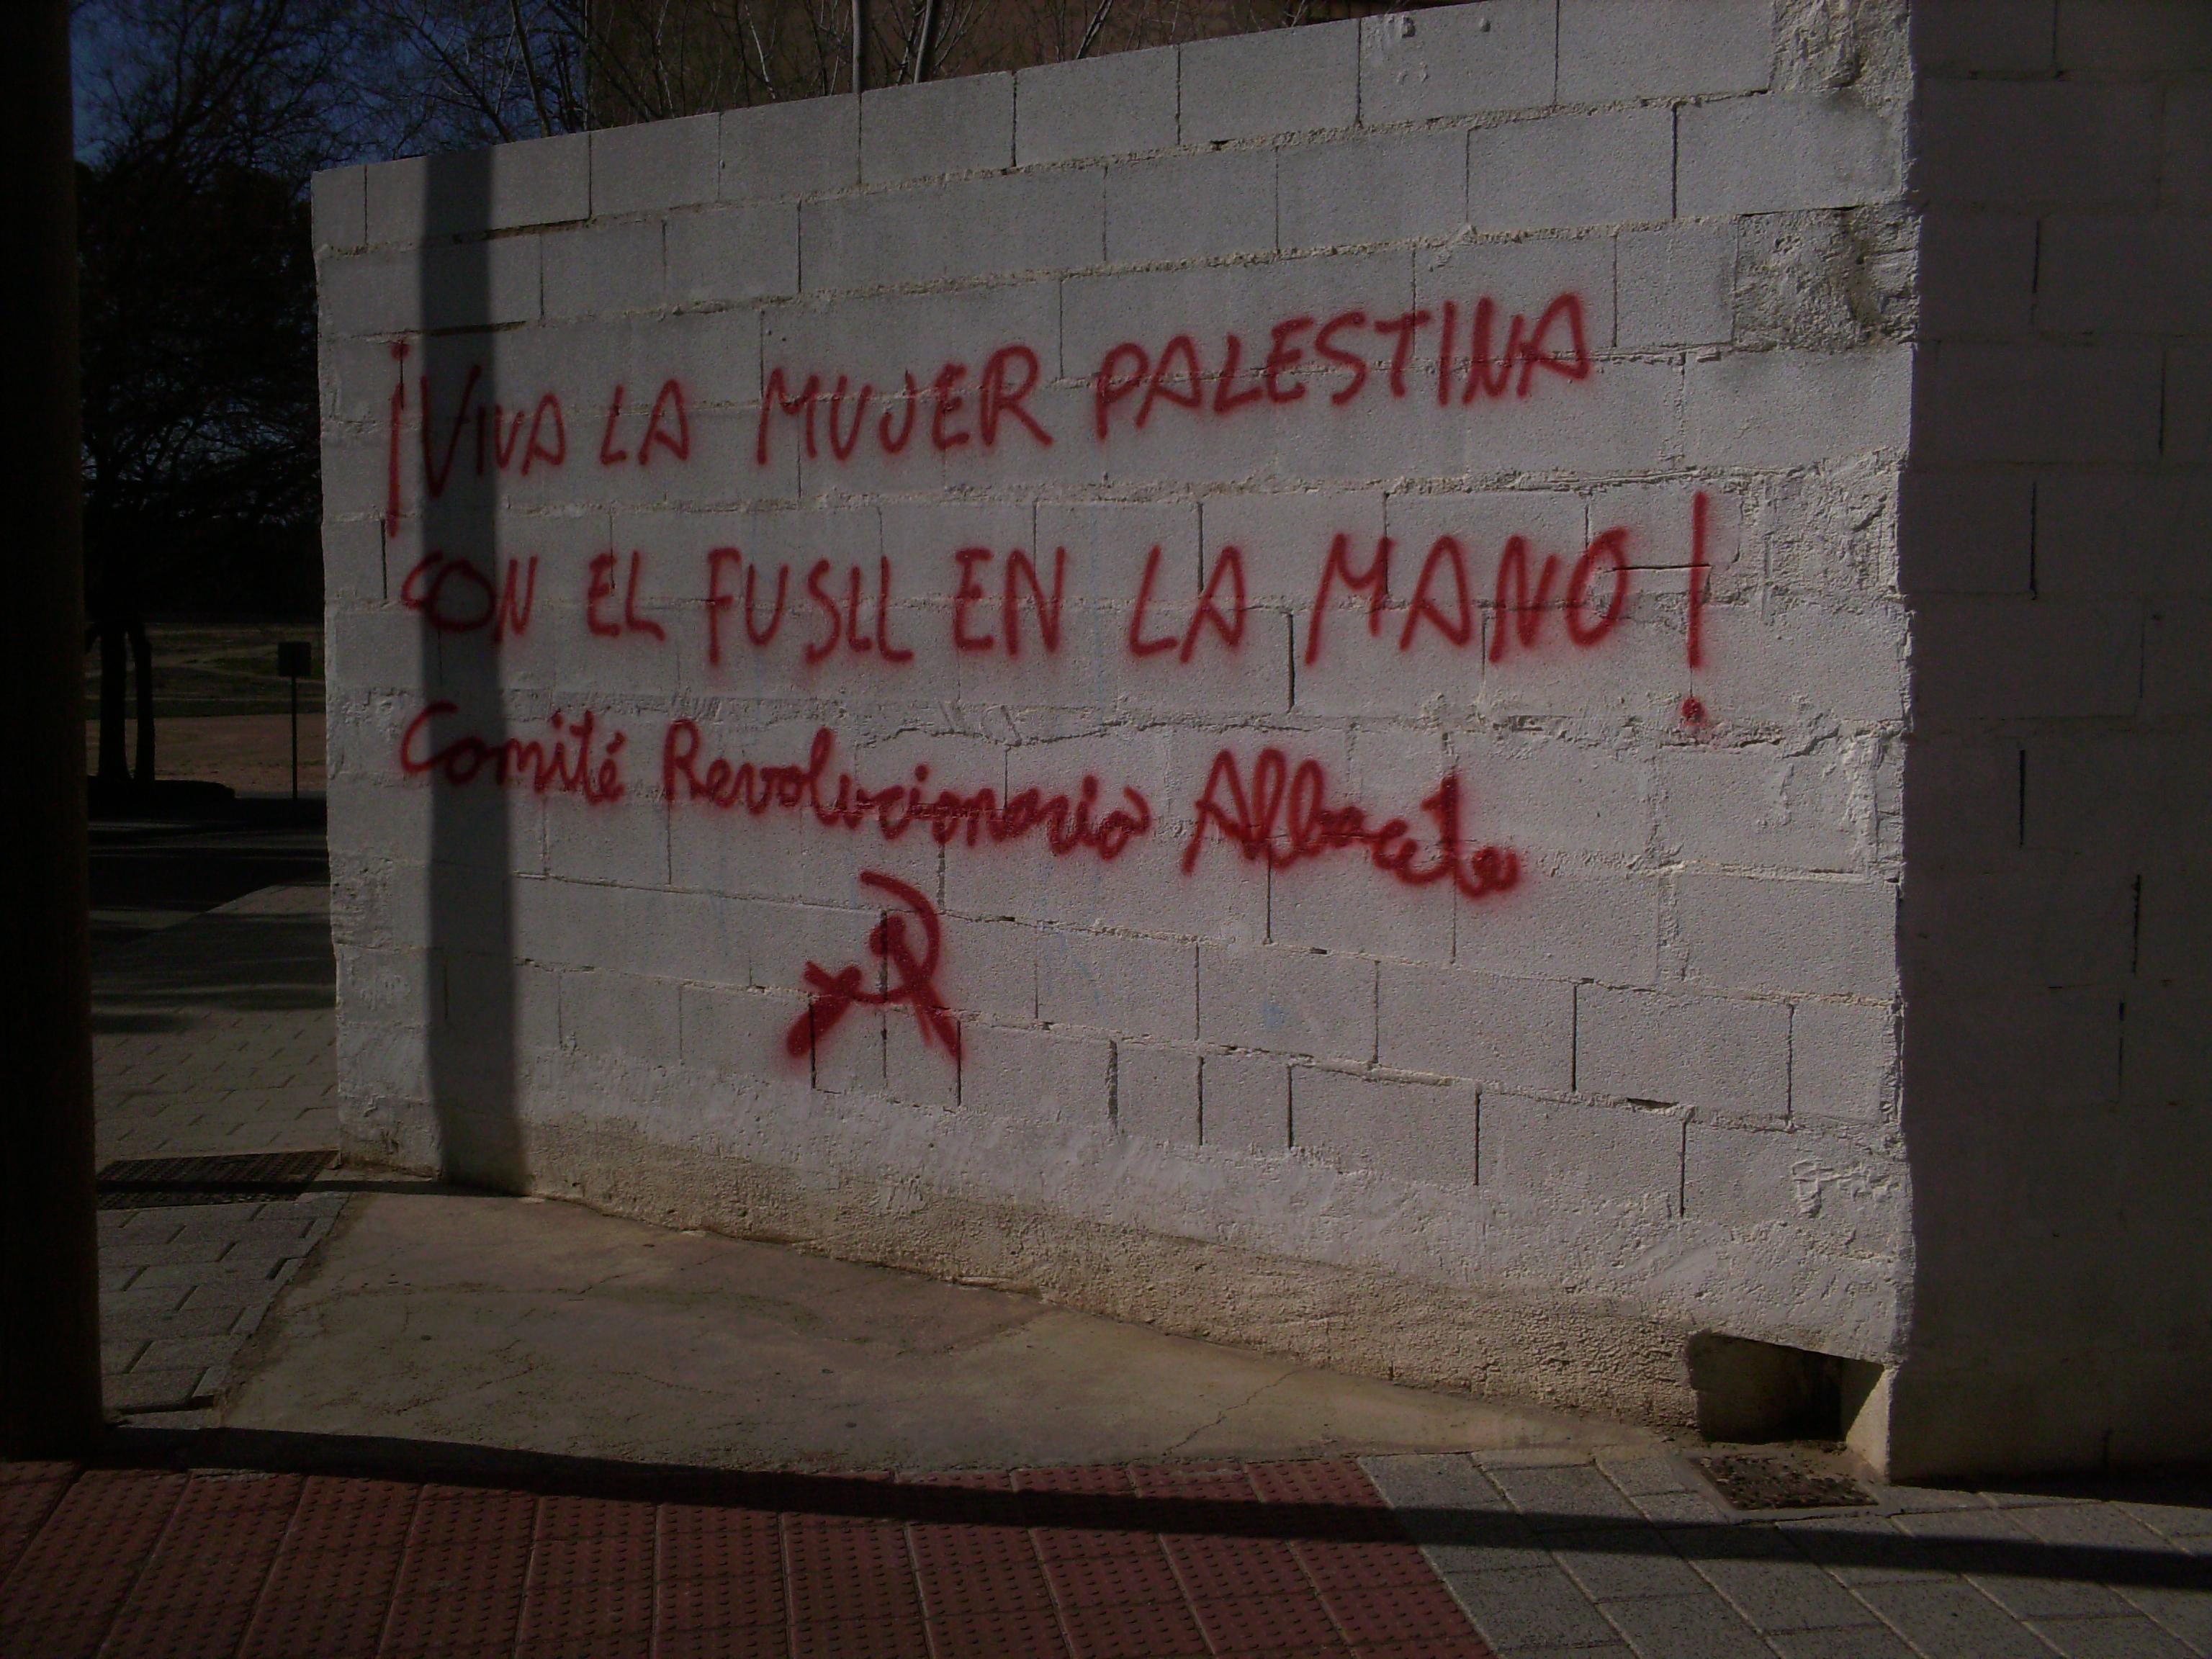 ¡VIVA LA MUJER PALESTINA
CON EL FUSIL EN LA MANO!
Comité Revolucionario Albacete